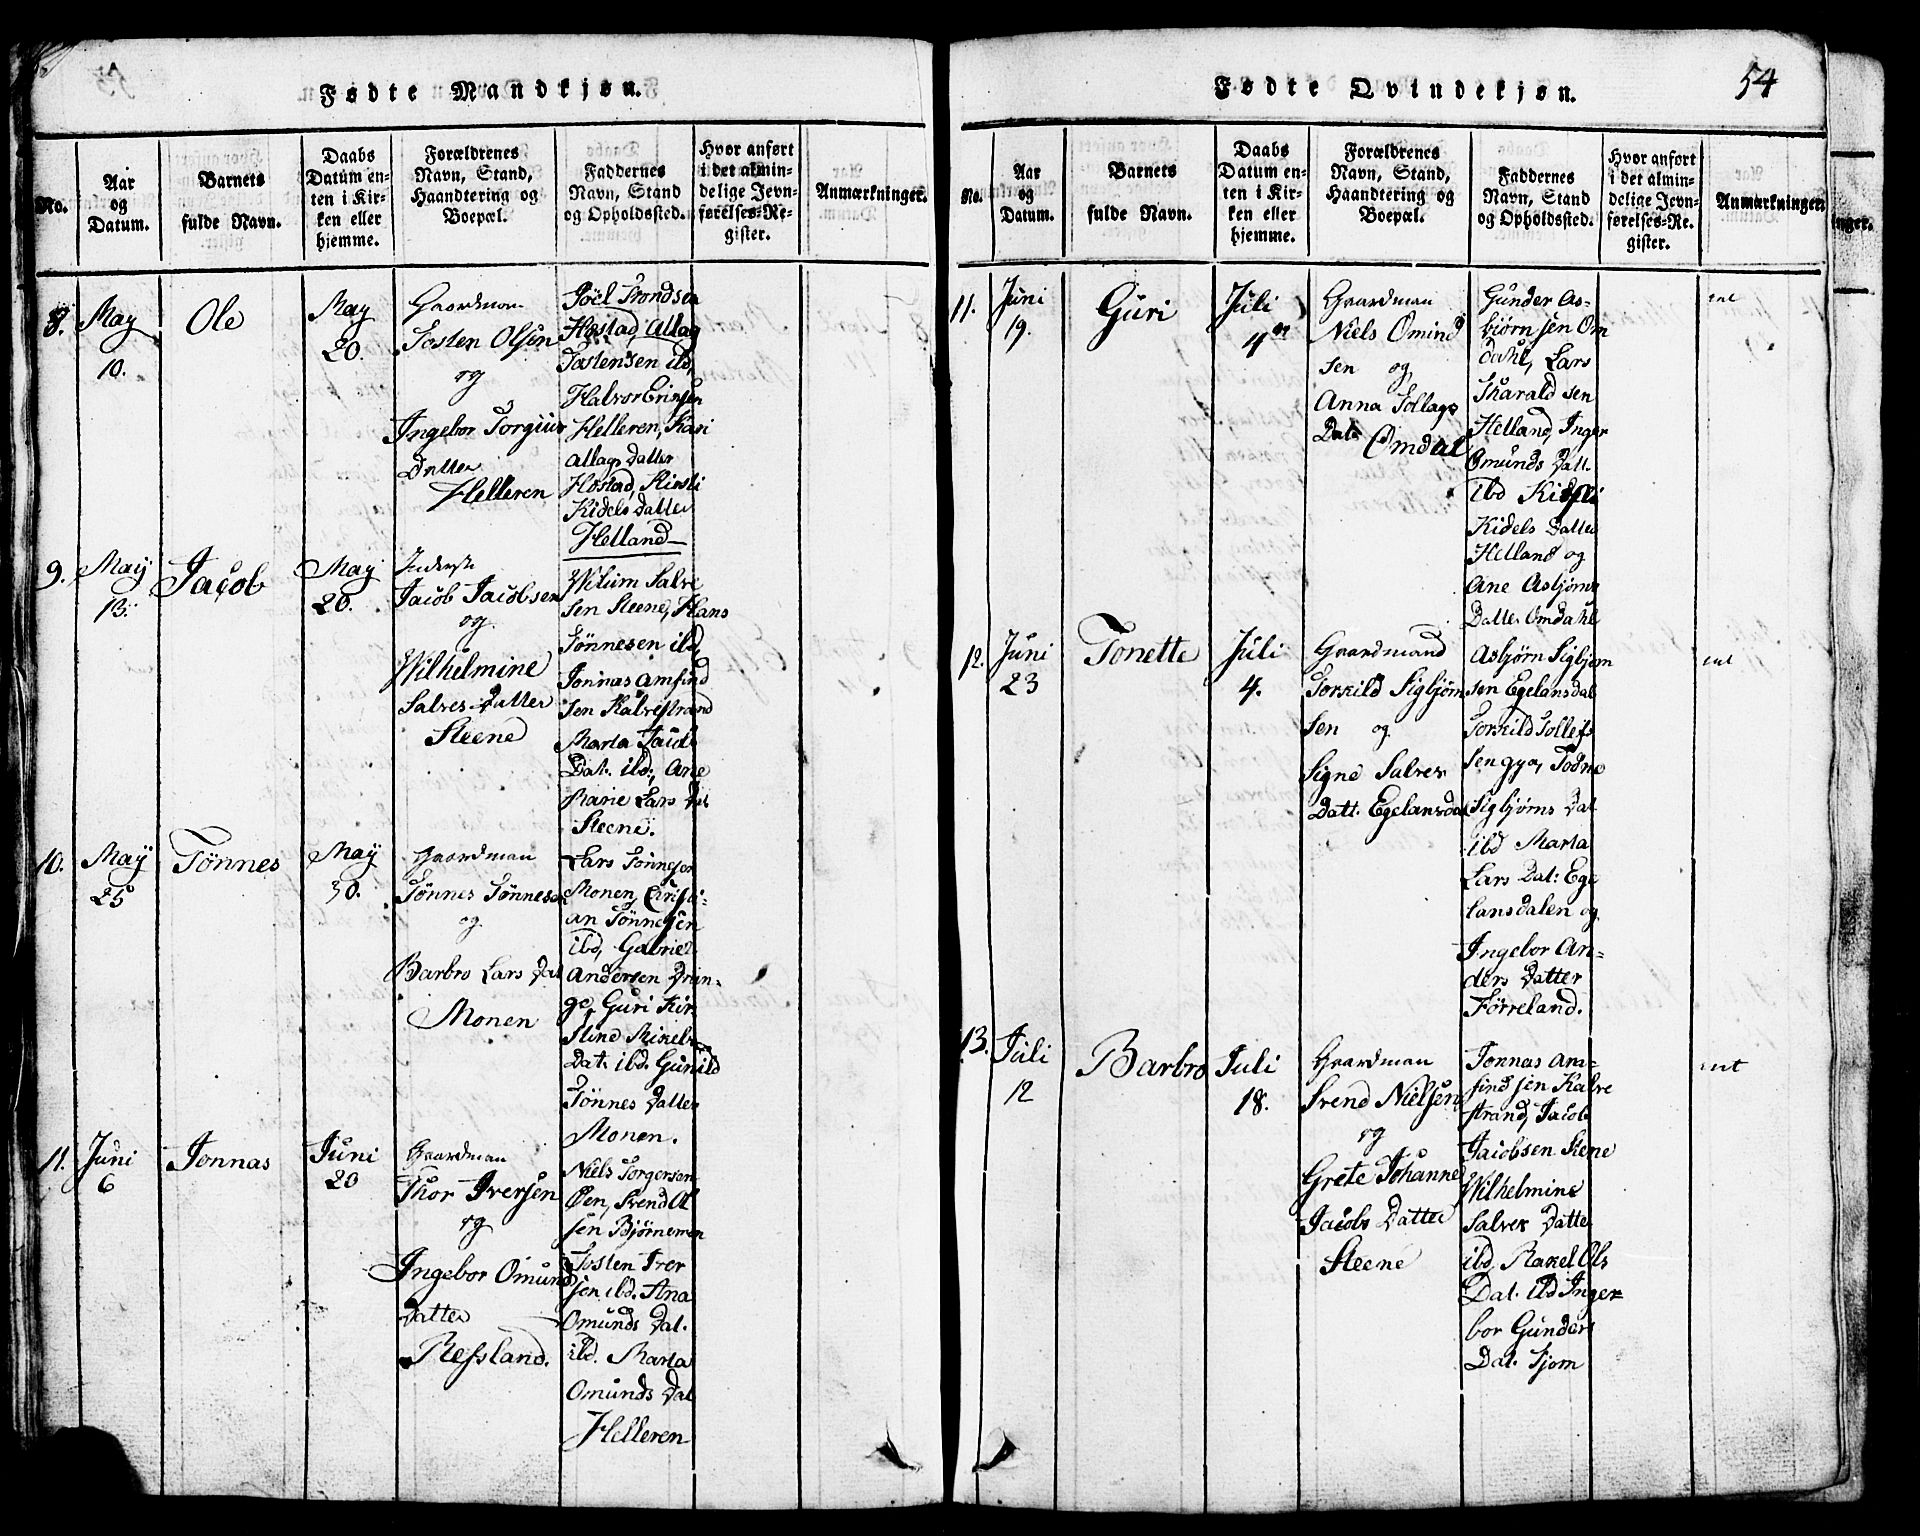 Fødte Mandkjøn.
No.
Aar
og
Datum.
Barnets
fulde Navn.
Daabs
Datum en-
ten i Kir-
ken eller
hjemme.
Forældrenes
Navn, Stand,
Haandtering og
Boepæl.
Faddernes
Navn, Stand
og Opholdssted.
Hvor anført
i det almin-
delige Jevn-
førelses-Re-
gister.
Anmærkninger.
8.
May
10.
Ole
May
20.
Gaardman
Tosten Olsen
og
Ingebor Torgius
Datter
Helleren
Joël Trondsen
Høstad, Allag
Tostensen ibd,
Halvor
Helleren, Kari
Allags Datter
Høstad, Kirsti
Kidels Datter
Helland
9.
May
13.
Jacob
May
20.
Inderst
Jacob Jacobsen
og
Wilhelmine
Salves Datter
Steene
Wilum Salve
sen Steene, Hans
Tönnesen ibd,
Jonnas Amfind
sen Kalvestrand
Marta Jacobs
Dat. ibd:, Ane
Marie Lars Dat
Steene.
10.
May
25
Tönnes
May
30.
Gaardman
Tönnes Tönnesen
og
Barbro Lars Dat
Monen
Lars Tönnesen
Monen, Christi-
an Tönnesen
ibd, Gabriel
Andersen Drin-
ge, Guri Kir
stine Mikels
Dat. ibd. Gunild
Tönnes Datter
Monen.
11.
Juni
6
Jonnas
Juni
20
Gaardman
Thor Iversen
og
Ingebor Omund
Datter
Refsland.
Niels Torgersen
Øen, Svend Ol
sen Bjørnemoen
Tosten Iver
sen ibd. Ana
Omunds Dat.
ibd. Marta
Omunds Dat
Helleren
Fødte Qvindekjøn.
54
No.
Aar
og
Datum.
Barnets
fulde Navn.
Daabs
Datum en-
ten i Kir-
ken eller
hjemme.
Forældrenes
Navn, Stand,
Haandtering og
Boepæl.
Faddernes
Navn, Stand
og Opholdssted.
Hvor anført
i det almin-
delige Jevn-
førelses-Re-
gister.
Anmærkninger.
nger.
11.
Juni
19.
Guri
Juli
4
Gaardman
Niels Omind
sen og
Anna Tollags
Dat. Omdal
Gunder As-
bjørnsen Om
dahl, Lars
Tharald sen
Helland, Inger
Omunds Datt.
ibd Kirsti
Kidels Datter
Helland og
Ane Asbjørns
Datter Omdahl
12.
Juni
23
Tonette
Juli
4.
Gaardmand
Torkild Sigbjörn
sen og
Signe Salves
Datt. Egelansdal
Asbjørn Sigbjørn
sen Egelansdal
Torkild Tollefs
sen Gya, Todne
Sigbjørns Dat
ibd Marta
Lars Dat: Ege
lansdalen og
Ingebor An-
ders Datter
Førreland.
13.
Juli
12
Barbro
Juli
18.
Gaardman
Svend Nielsen
og
Grete Johanne
Jacobs Datter
Steene
Jonnas Am-
find sen Kalve
strand, Jacob
Jacobsen Stene
Wilhelmine
Salves Datter
ibd, Rakel Ols
Dat. ibd Inge-
bor Gunders
Dat. Tjom